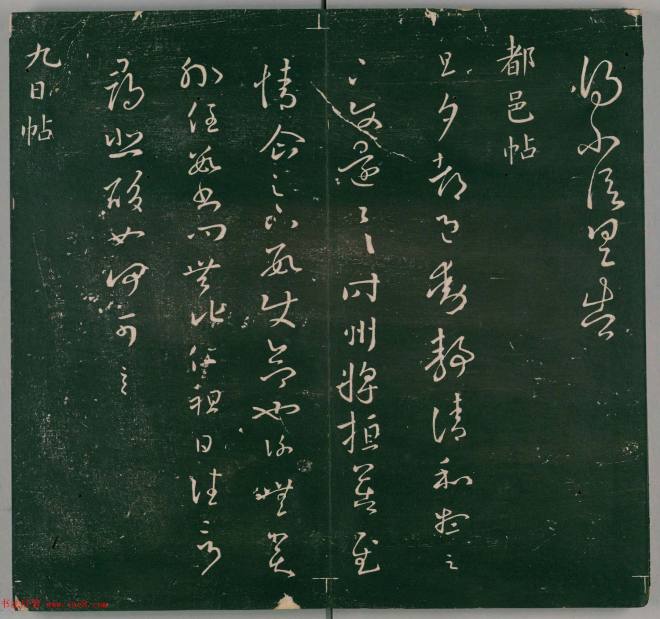 得不信具告
都邑帖
旦夕都邑動靜清和想足
下使還一一時州將桓公告慰
情企足下數使命也謝無奕
外任數書問無他仁祖日往言
尋悲酸如何可言
九日帖
www.yac8.com